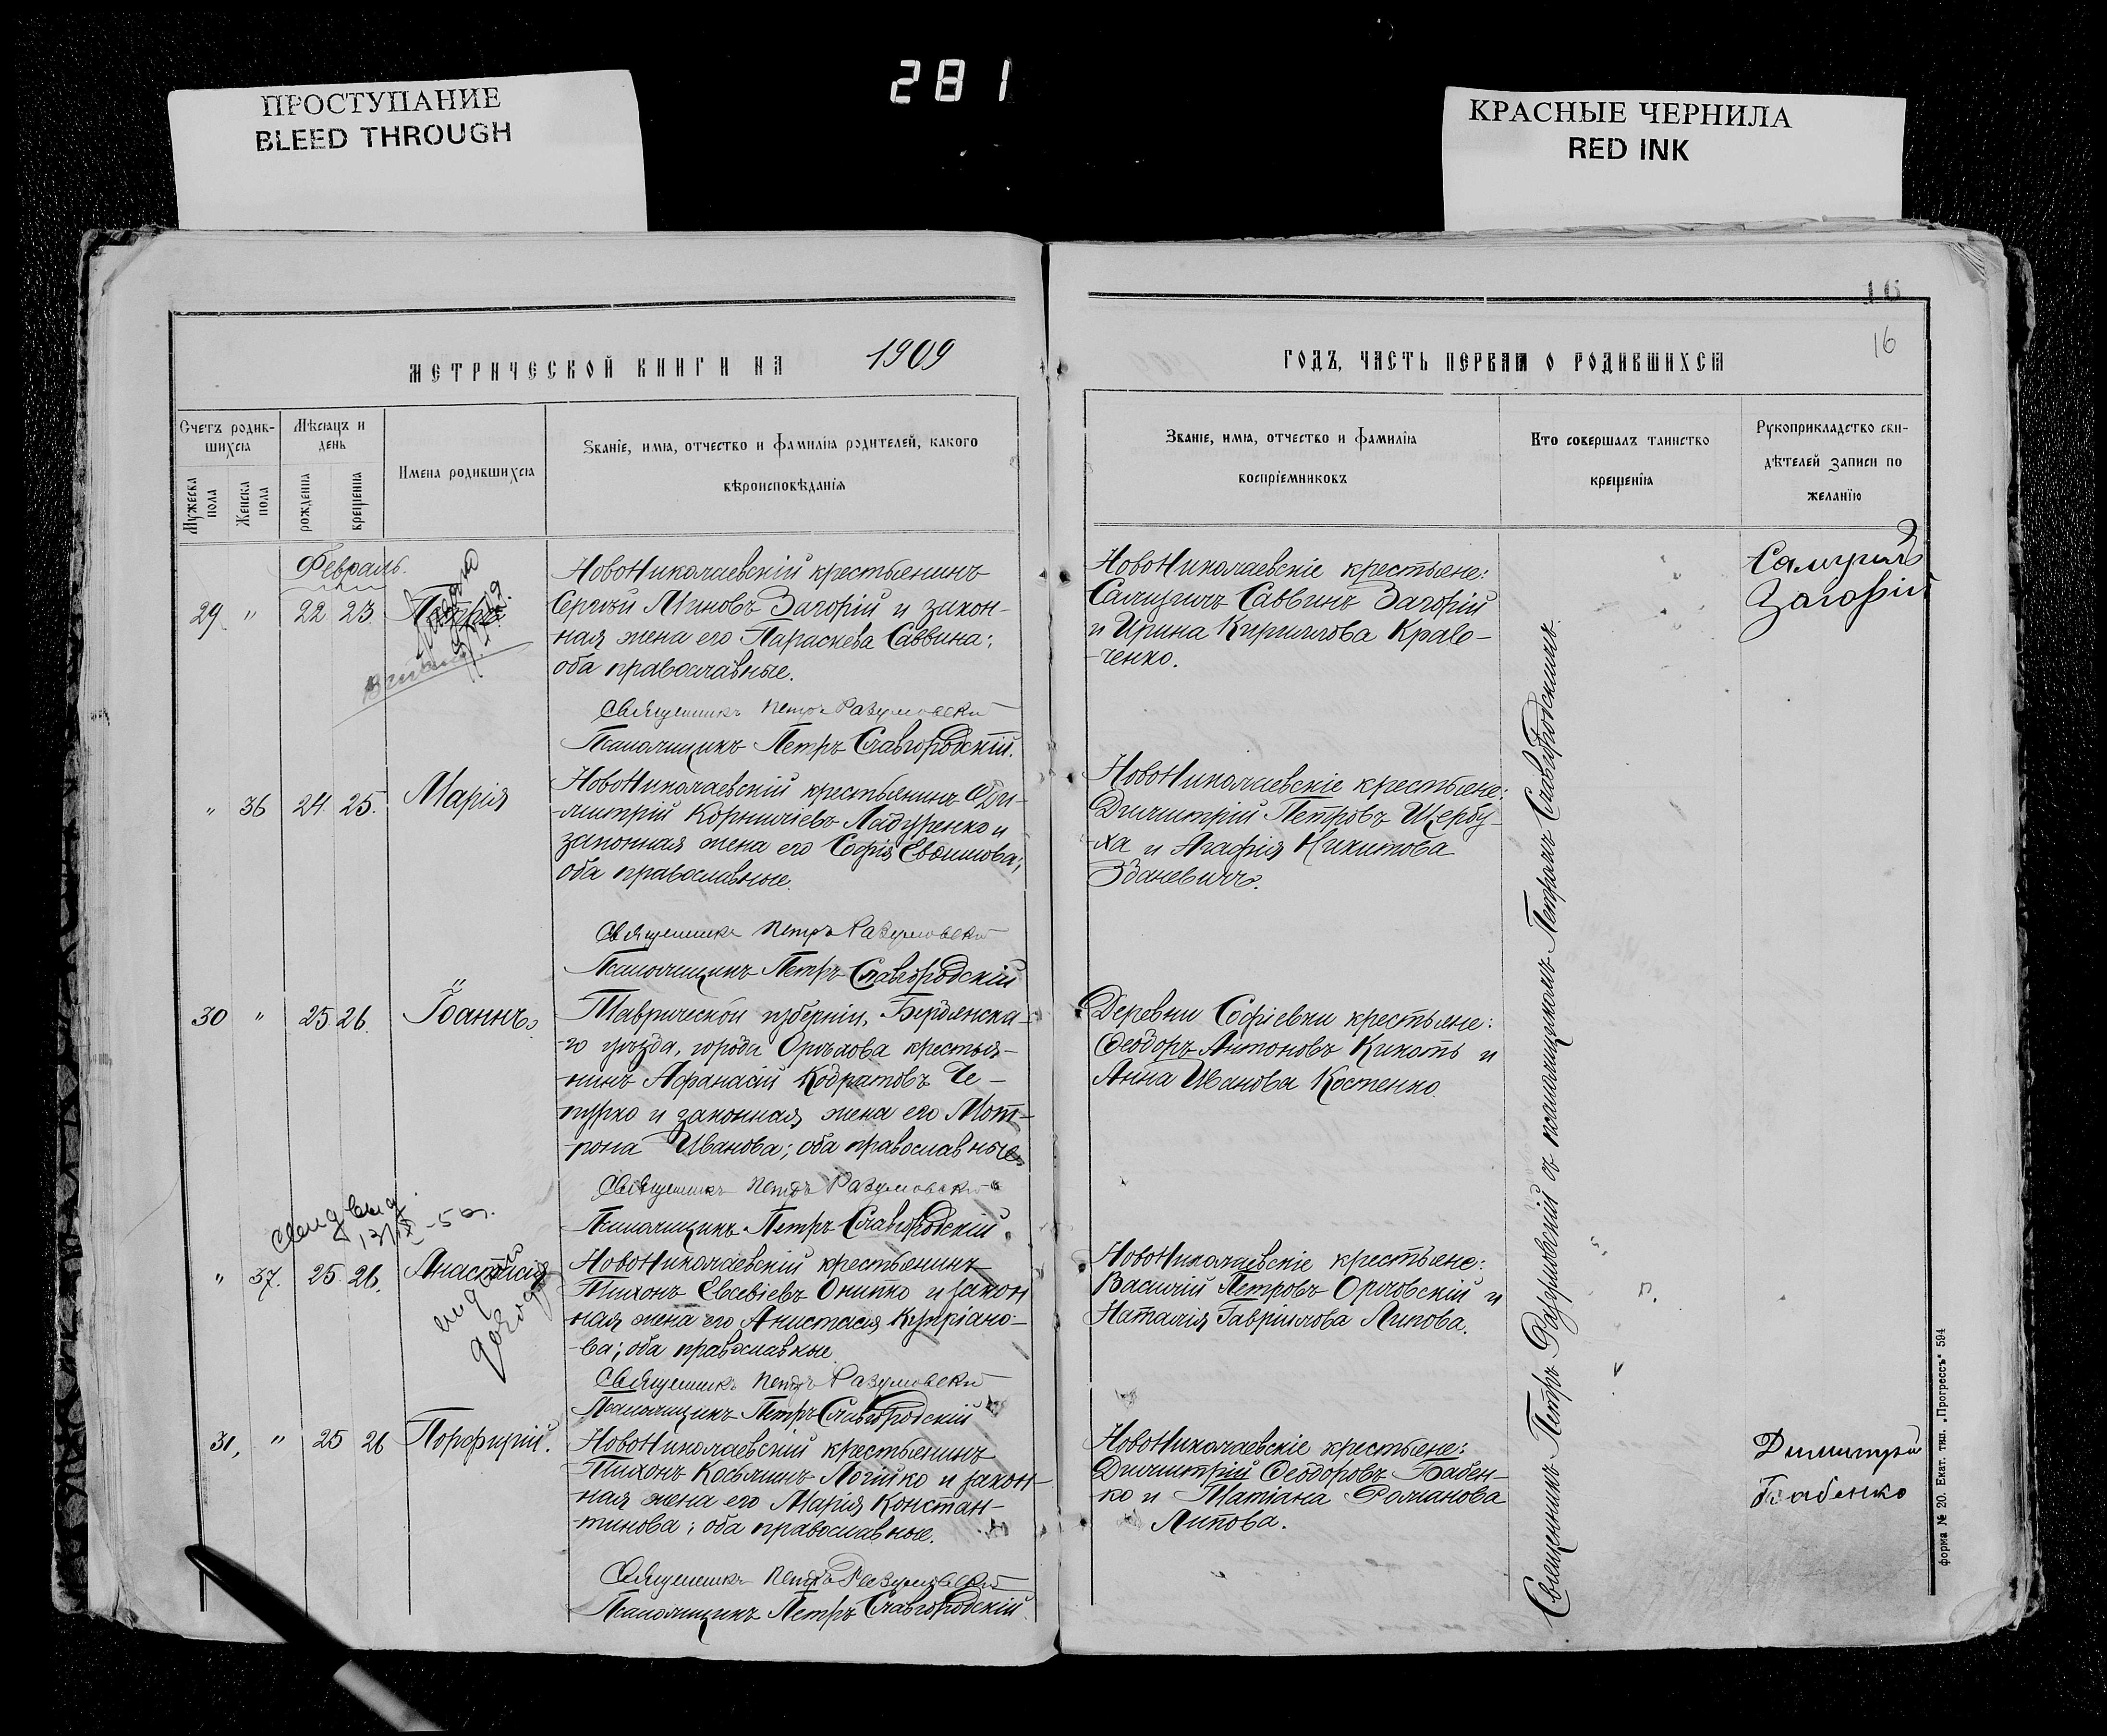 281
ПРОСТУПАНИЕ
BLEED THROUGH
КРАСНЫЕ ЧЕРНИЛА
RED INK
16
16
МЕТРИЧЕСКОЙ КНИГИ НА 1909
ГОДЪ, ЧАСТЬ ПЕРВАЯ О РОДИВШИХСЯ
Счетъ родив-
шихся
Мужеска пола
Женска пола
Мѣсяцъ и
день
рожденія
крещенія
Имена родившихся
Званіе, имя, отчество и фамилія родителей, какого
вѣроисповѣданія
Званіе, имя, отчество и фамилія
воспріемниковъ
Кто совершалъ таинство
крещенія
Рукоприкладство сви-
дѣтелей записи по
желанію
Февраль.
29 " 22 23
НовоНиколаевскій крестьянинъ
Сергѣй Миновъ Загорій и закон-
ная жена его Параскева Саввина;
оба православные.
Священникъ Петръ Разумовскій
Псаломщикъ Петръ Славгородскій.
НовоНиколаевскіе крестьяне:
Самуилъ Саввинъ Загорій
и Ирина Кириллова Крав-
-ченко.
Самуилъ
Загорій
" 36 24 25. Марія
НовоНиколаевскій крестьянинъ Ди-
-митрій Корниліевъ Ладуренко и
законная жена его Софія Евдимова;
оба православные.
Священникъ Петръ Разумовскій
Псаломщикъ Петръ Славгородскій
НовоНиколаевскіе крестьяне:
Димитрій Петровъ Щербу-
-ха и Агафія Никитова
Зданевичъ.
30 " 25 26. Іоаннъ
Таврической губерніи, Бердянска-
-го уѣзда, города Орѣхова крестья-
-нинъ Афанасій Кодратовъ Че-
пурко и законная жена его Мот-
-рона Иванова; оба православные
Священникъ Петръ Разумовскій
Псаломщикъ Петръ Славгородскій.
Деревни Софіевки крестьяне:
Ѳеодоръ Антоновъ Кихоть и
Анна Иванова Костенко.
" 37. 25. 26. Анастасія
НовоНиколаевскій крестьянинъ
Тихонъ Евсевіевъ Онипко и закон
ная жена его Анастасія Купріано-
-ва; оба православные
Священникъ Петръ Разумовскій
Псаломщикъ Петръ Славгородскій
НовоНиколаевскіе крестьяне:
Василій Петровъ Орловскій и
Наталія Гавріилова Липова.
31, " 25 26 Порфирій.
НовоНиколаевскій крестьянинъ
Тихонъ Косьминъ Логійко и закон-
-ная жена его Марія Констан-
-тинова; оба православные.
Священникъ Петръ Разумовскій
Псаломщикъ Петръ Славгородскій
НовоНиколаевскіе крестьяне:
Димитрій Ѳеодоровъ Бабен-
-ко и Татіана Романова
Липова.
Димитрій
Бабенко
Священникъ Петръ Разумовскій съ псаломщикомъ Петромъ Славгородскимъ.
форма № 20. Екат. тип. „Прогрессъ" 594